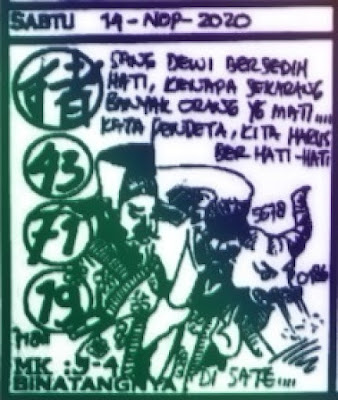 SABTU 14-NOP-2020
SANG DEWI BERSEDIH
HATI, KENAPA SEKARANG
BANYAK ORANG YG MATI....
KATA PENDETA, KITA HARUS
BER HATI-HATI
猪
43
71
19
5678
MK : 9-4
BINATANGNYA DI SATE....